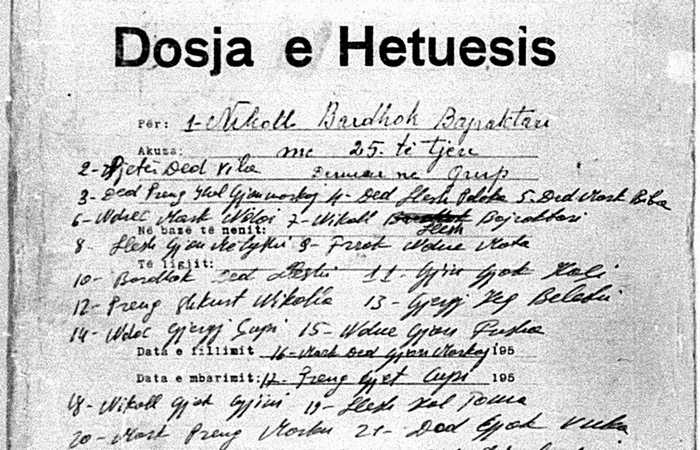 Dosja e Hetuesis
Për: 1- Nikoll Bardhok Bajraktari
Akuza: me 25. të tjerë
2- Pjetër Ded Vila Dënuar në Grup
3- Ded Preng Kol Gjonmarkaj 4- Ded Llesh Paloka 5. Ded Mark Biba
6- Ndrec Mark Ndoi 7- Nikoll Llesh Bajraktari
Në bazë të nenit:
8- Llesh Gjon 9- Frrok Ndue Mata
Të ligjit:
10- Bardhok Ded Lleshi 11- Gjin Gjok Koli
12- Preng Shkurt Nikolla 13- Gjergj Beleshi
14- Ndoc Gjergj Cupi 15- Ndue Gjon Fusha
Data e fillimit 16- Mark Ded Gjon Markaj 195
Data e mbarimit: 17- Preng Gjet Cupi 195
18- Nikoll Gjok Gjini 19- Llesh Kol Toma
20- Mark Preng Marku 21- Ded Gjok Vuka